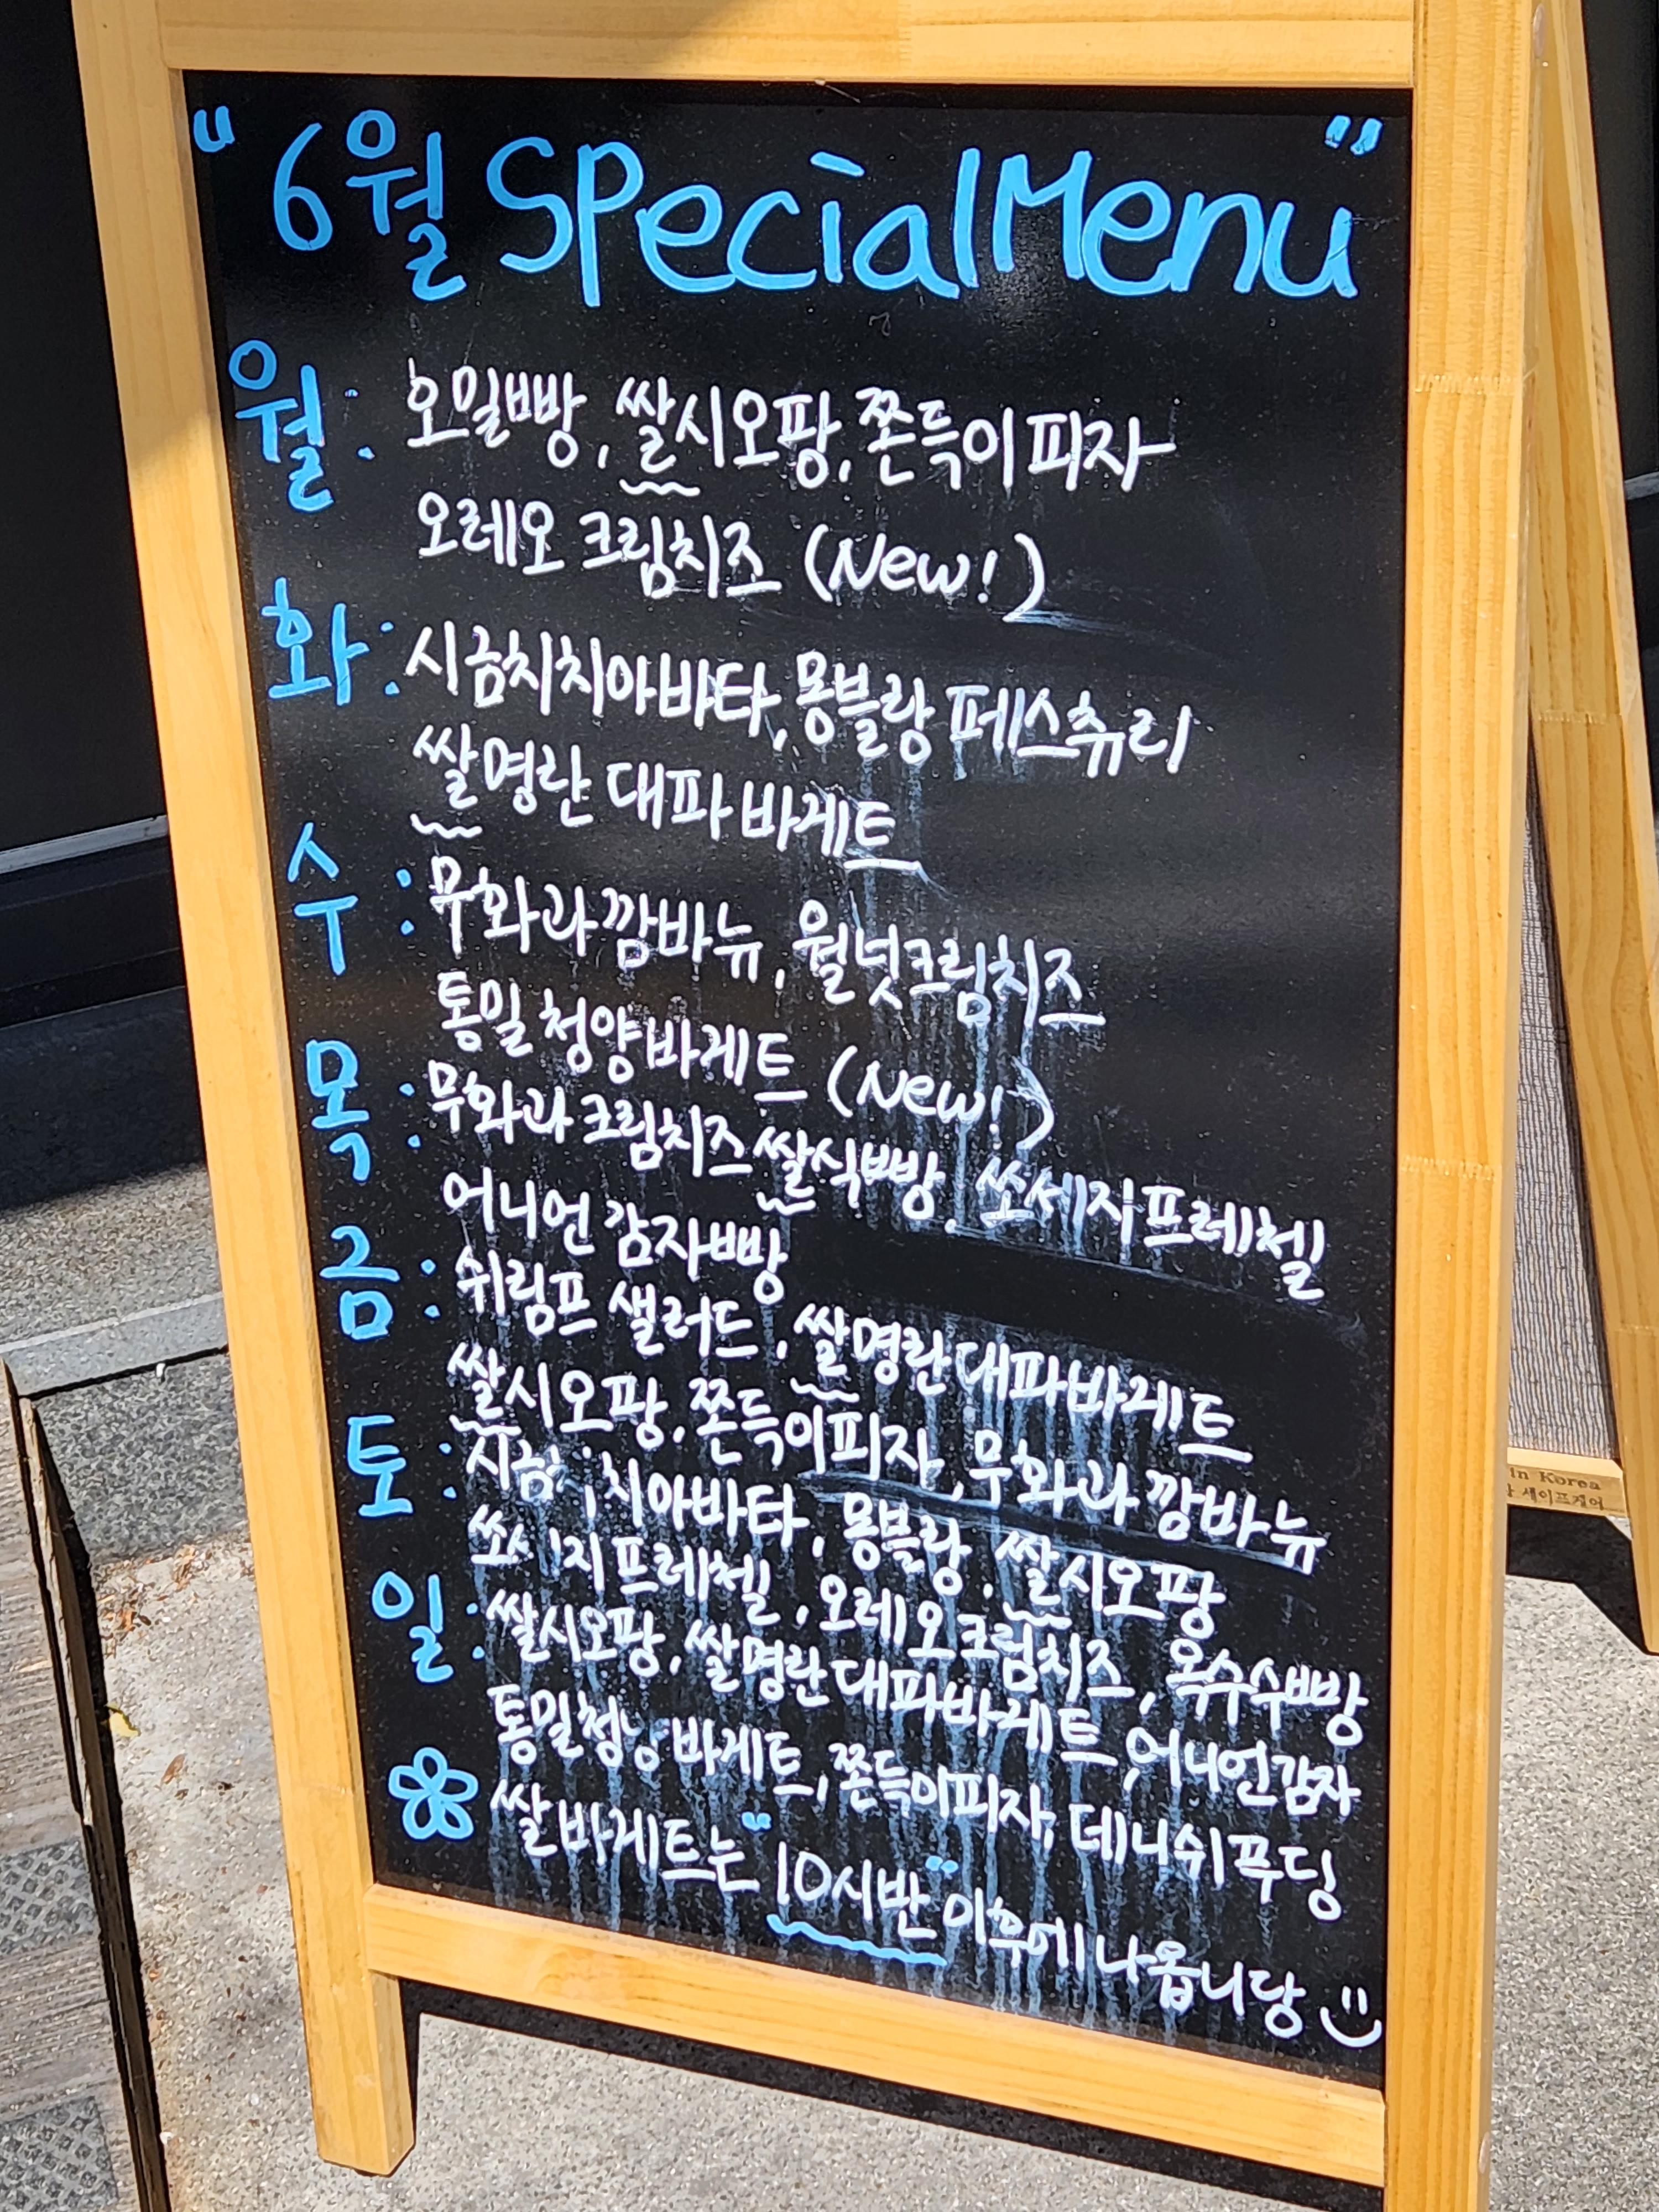 " 6월 Special Menu "
월: 호밀빵, 쌀시오팡, 쫀득이 피자
오레오 크림치즈 (New!)
화: 시금치치아바타, 몽블랑 페스츄리
쌀명란 대파 바게트
수: 무화과깜바뉴, 월넛크림치즈
통밀 청양바게트 (New!)
목: 무화과 크림치즈 쌀식빵, 쏘세지프레첼
어니언 감자빵
금: 쉬림프 샐러드, 쌀명란대파바게트
쌀시오팡, 쫀득이피자, 무화과 깜바뉴
토: 치아바타, 몽블랑, 쌀시오팡
프레첼, 오레오크림치즈, 옥수수빵
일: 쌀시오팡, 쌀명란대파바게트, 어니언감자
바게트, 쫀득이피자, 데니쉬푸딩
쌀바게트는 "10시반" 이후에 나옵니당
in Korea
세이프케어